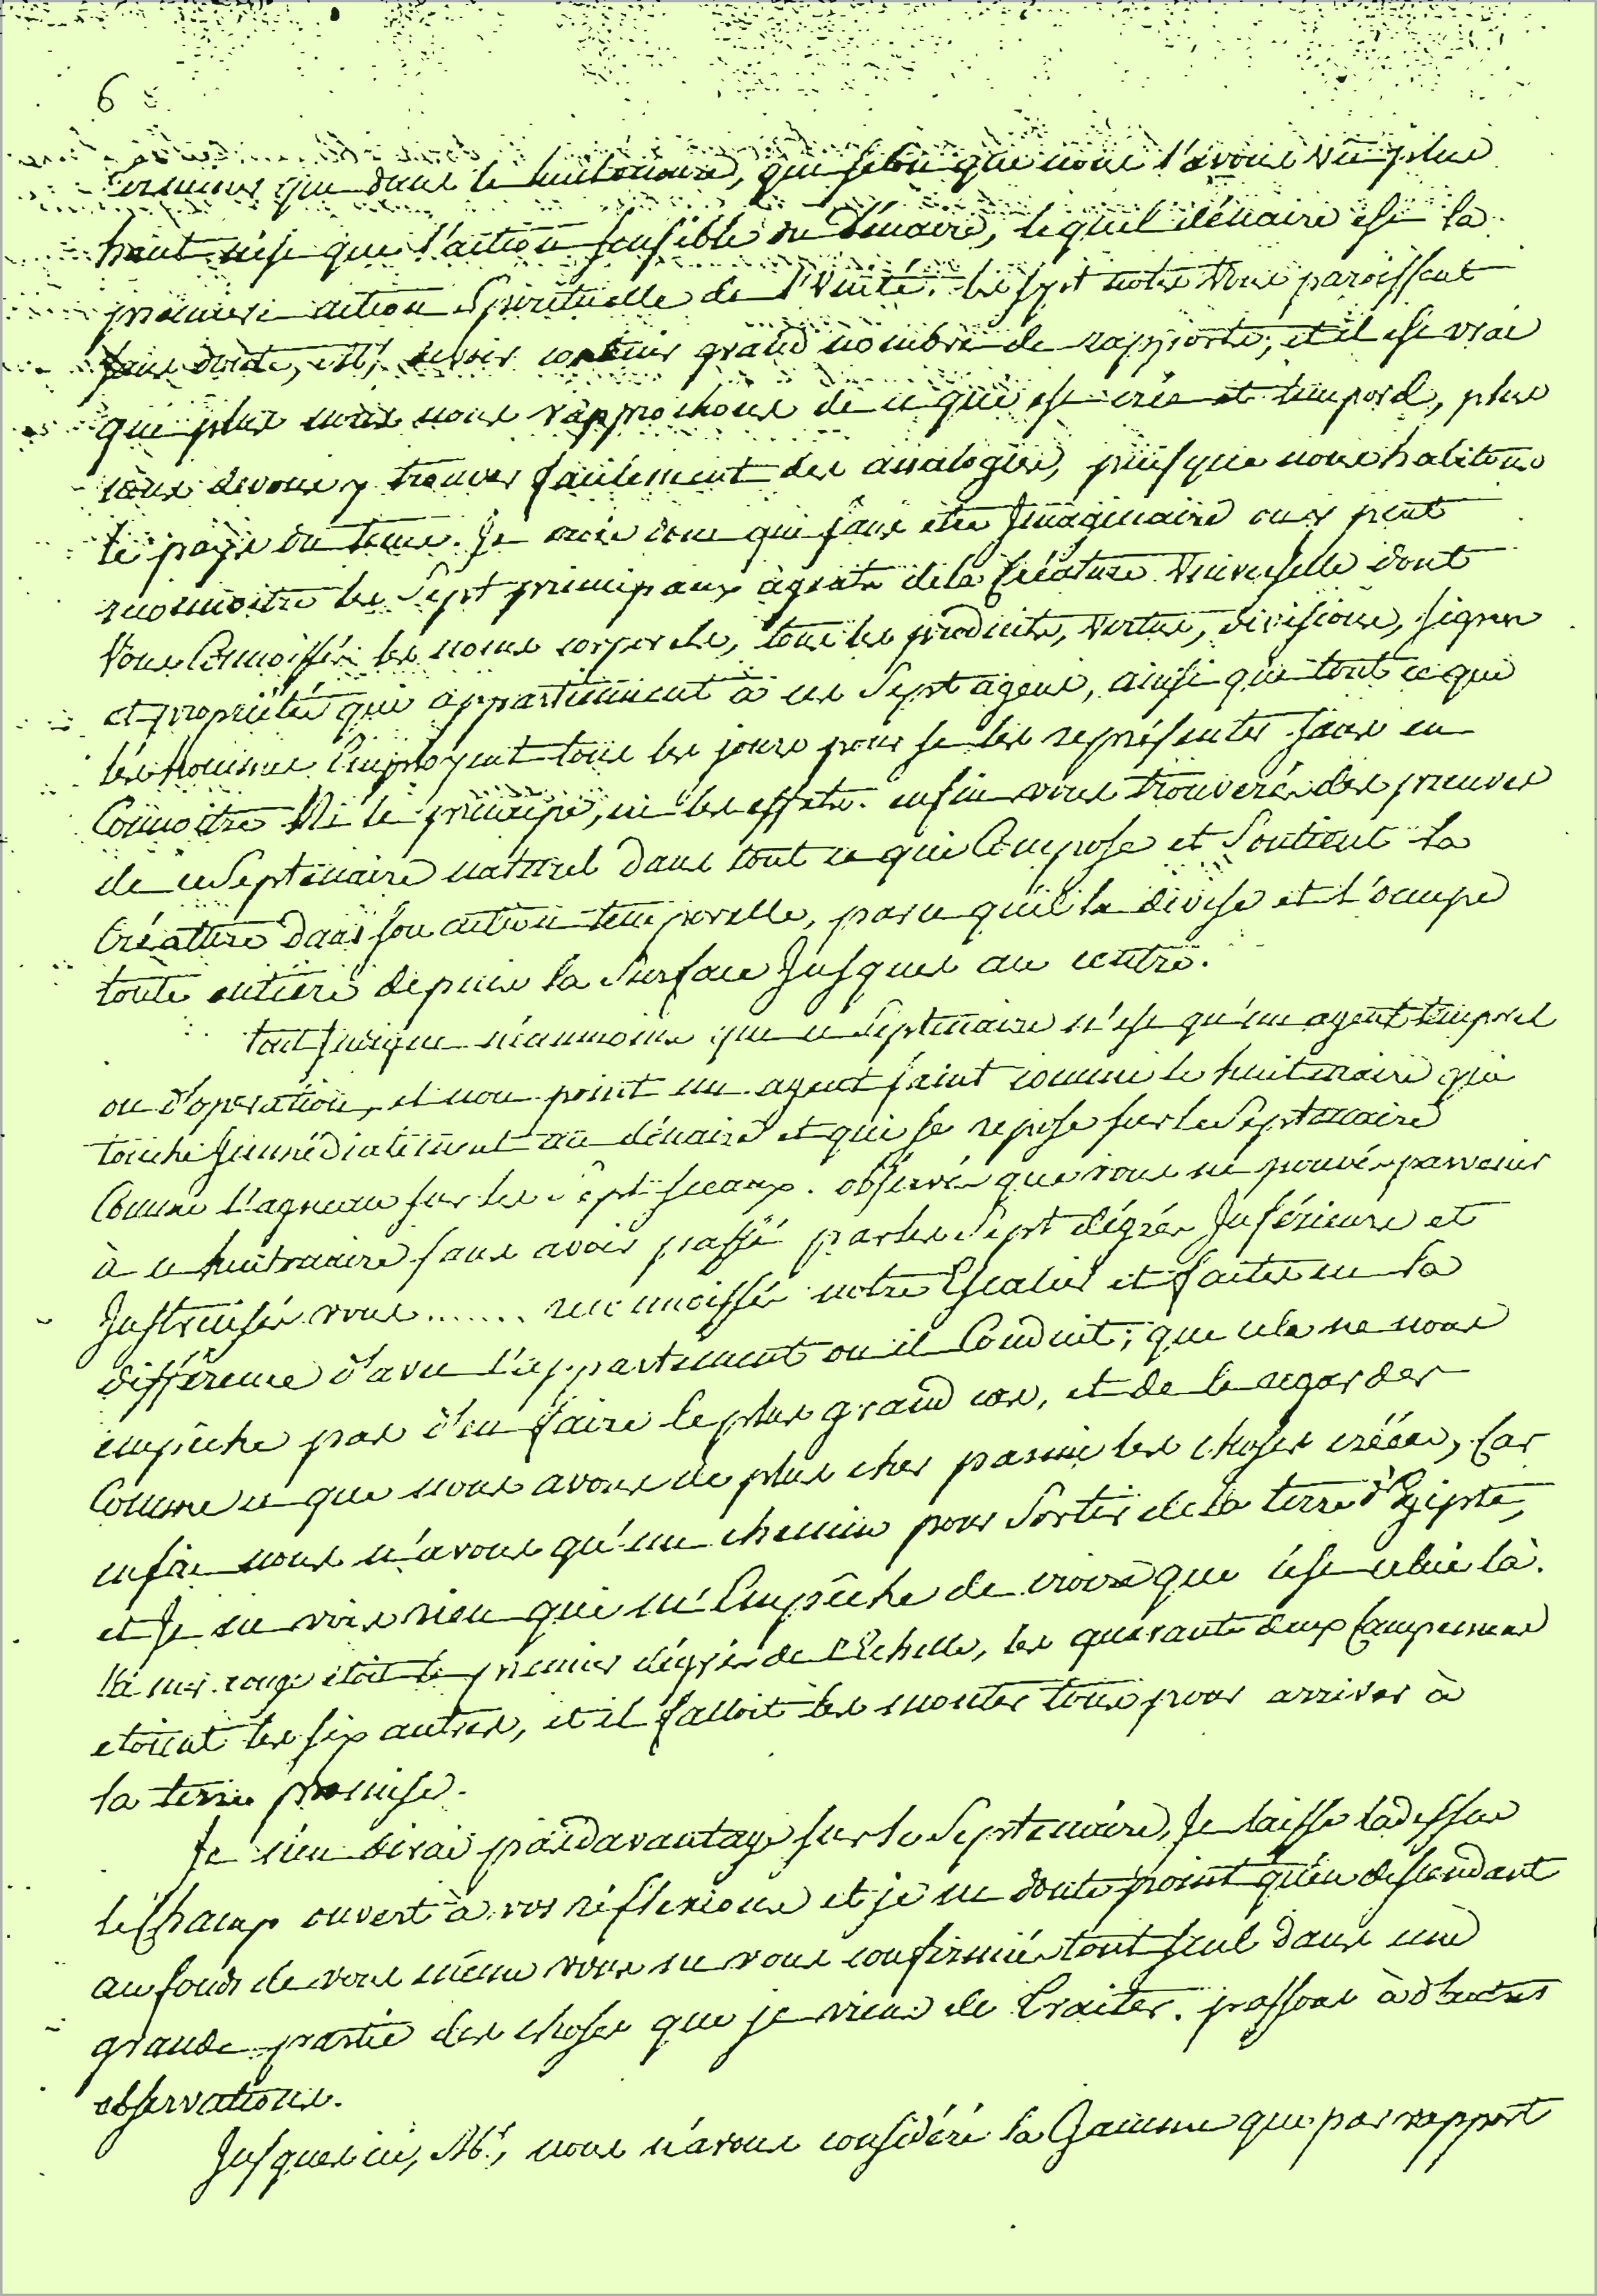 6
terminer que dans le huitenaire, qui selon que nous l'avons vu plus
haut n'est que l'action sensible du dénaire, lequel dénaire est la
premiere action Spirituelle de l'Unité. les sept notes vous paroissent
sans doute, Mr, devoir contenir grand nombre de rapports, et il est vrai
que plus nous nous rapprochons de ce qui est créé et temporel, plus
nous devons y trouver facilement des analogies, puisque nous habitons
le pays du tems. Je crois donc que sans etre Imaginaire on y peut
reconnoitre les Sept principaux agents de la Créature Universelle dont
Vous Connoissés les noms corporels, tous les produits, vertus, divisions, signes
et propriétés qui appartiennent à ces Sept agens, ainsi que tout ce que
les hommes Employent tous les jours pour se les représenter sans en
Connoitre Ni le principe, ni les effets. enfin vous trouverés des preuves
de ce Septenaire naturel dans tout ce qui Compose et Soutient la
Créature dans son action temporelle, parce qu'il la divise et l'occupe
toute entiere depuis la Surface Jusques au centre.
tout Indique néanmoins que ce Septenaire n'est qu'un agent temporel
ou d'opération, et non point un agent saint comme le huitenaire qui
touche Immédiatement au dénaire et qui se repose sur le Septenaire
Comme l'agneau sur les Sept sceaux. observés que vous ne pouvés parvenir
à ce huitenaire sans avoir passé par les Sept dégrés Inférieurs et
Instruisés vous....... reconnoissés notre Escalier et faites en la
différence d'avec l'appartement ou il Conduit; que cela ne nous
empêche pas d'en faire le plus grand cas, et de le regarder
Comme ce que nous avons de plus cher parmi les choses créées, Car
enfin nous n'avons qu'un chemin pour Sortir de la terre d'Egipte,
et Je ne vois rien qui m'Empêche de croire que c'est celui là.
la mer rouge étoit le premier dégré de l'Echelle, les quarante deux Campemens
etoient les six autres, et il falloit les monter tous pour arriver à
la terre promise.
Je n'en dirai pas davantage sur le Septenaire, Je laisse ladessus
le Champ ouvert à vos réflexions et je ne doute point qu'en descendant
au fonds de vous même vous ne vous confirmiés tout seul dans une
grande partie des choses que je viens de traiter. passons à d'autres
observations.
Jusques ici, Mr, nous n'avons considéré la Gamme que par rapport